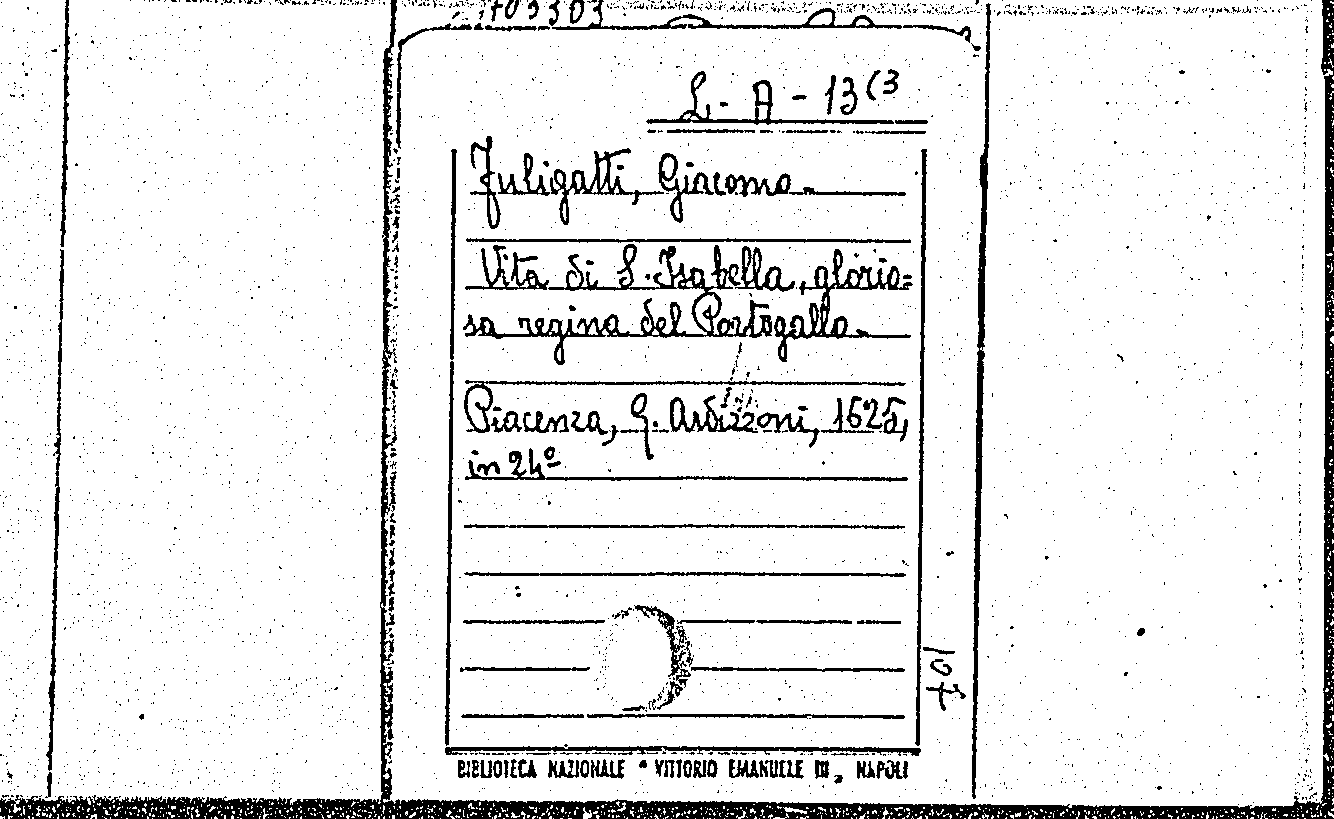 L. A - 13(3
Fuligatti, Giacomo.
Vita di S. Isabella, glorio=
sa regina del Portogallo.
Piacenza, G. Ardizzoni, 1625,
in 24º
701
BIBLIOTECA NAZIONALE " VITTORIO EMANUELE III „ NAPOLI